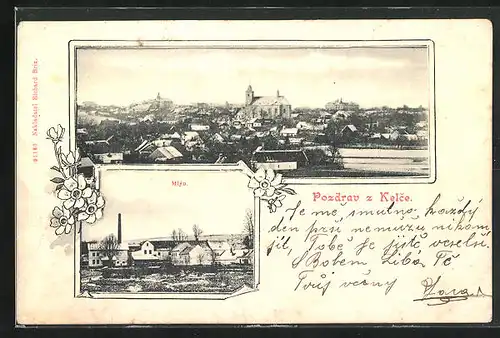 21183 Nakladatel Richard Brix.
Mlýn.
Pozdrav z Kelče.
Je mě smutno, každý
den prší nemužu nikam
jít, Tobě je jistě veselší
S Bohem líbá Tě
Tvůj věčný